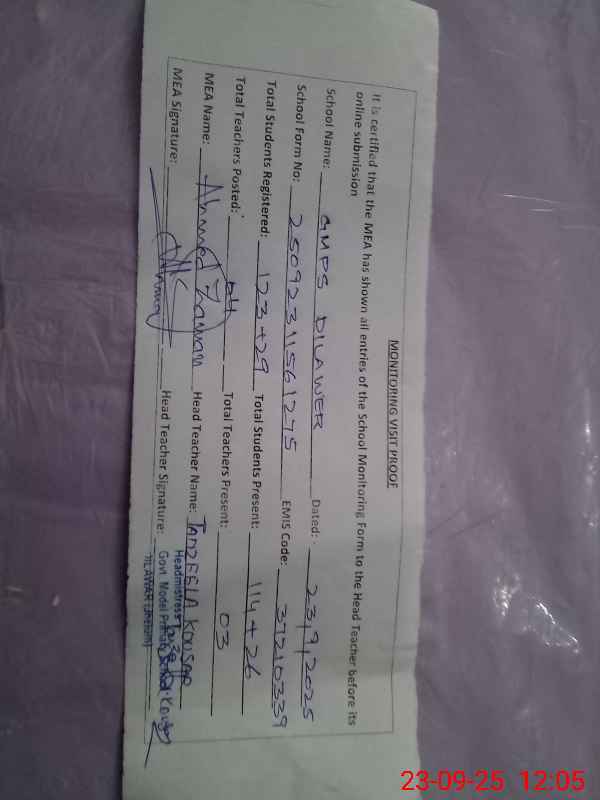 MONITORING VISIT PROOF
It is certified that the MEA has shown all entries of the School Monitoring Form to the Head Teacher before its
online submission
School Name: GMPS DILAWER Dated: 23/9/2025
School Form No: 25092311561275 EMIS Code: 37210339
Total Students Registered: 123+29 Total Students Present: 114+26
Total Teachers Posted: 04 Total Teachers Present: 03
MEA Name: Ahmed Zaman Head Teacher Name: TANZEELA KOUSAR
MEA Signature: Head Teacher Signature:
Headmistress
Govt. Model Primary School
DILAWAR (Jhelum)
23-09-25 12:05